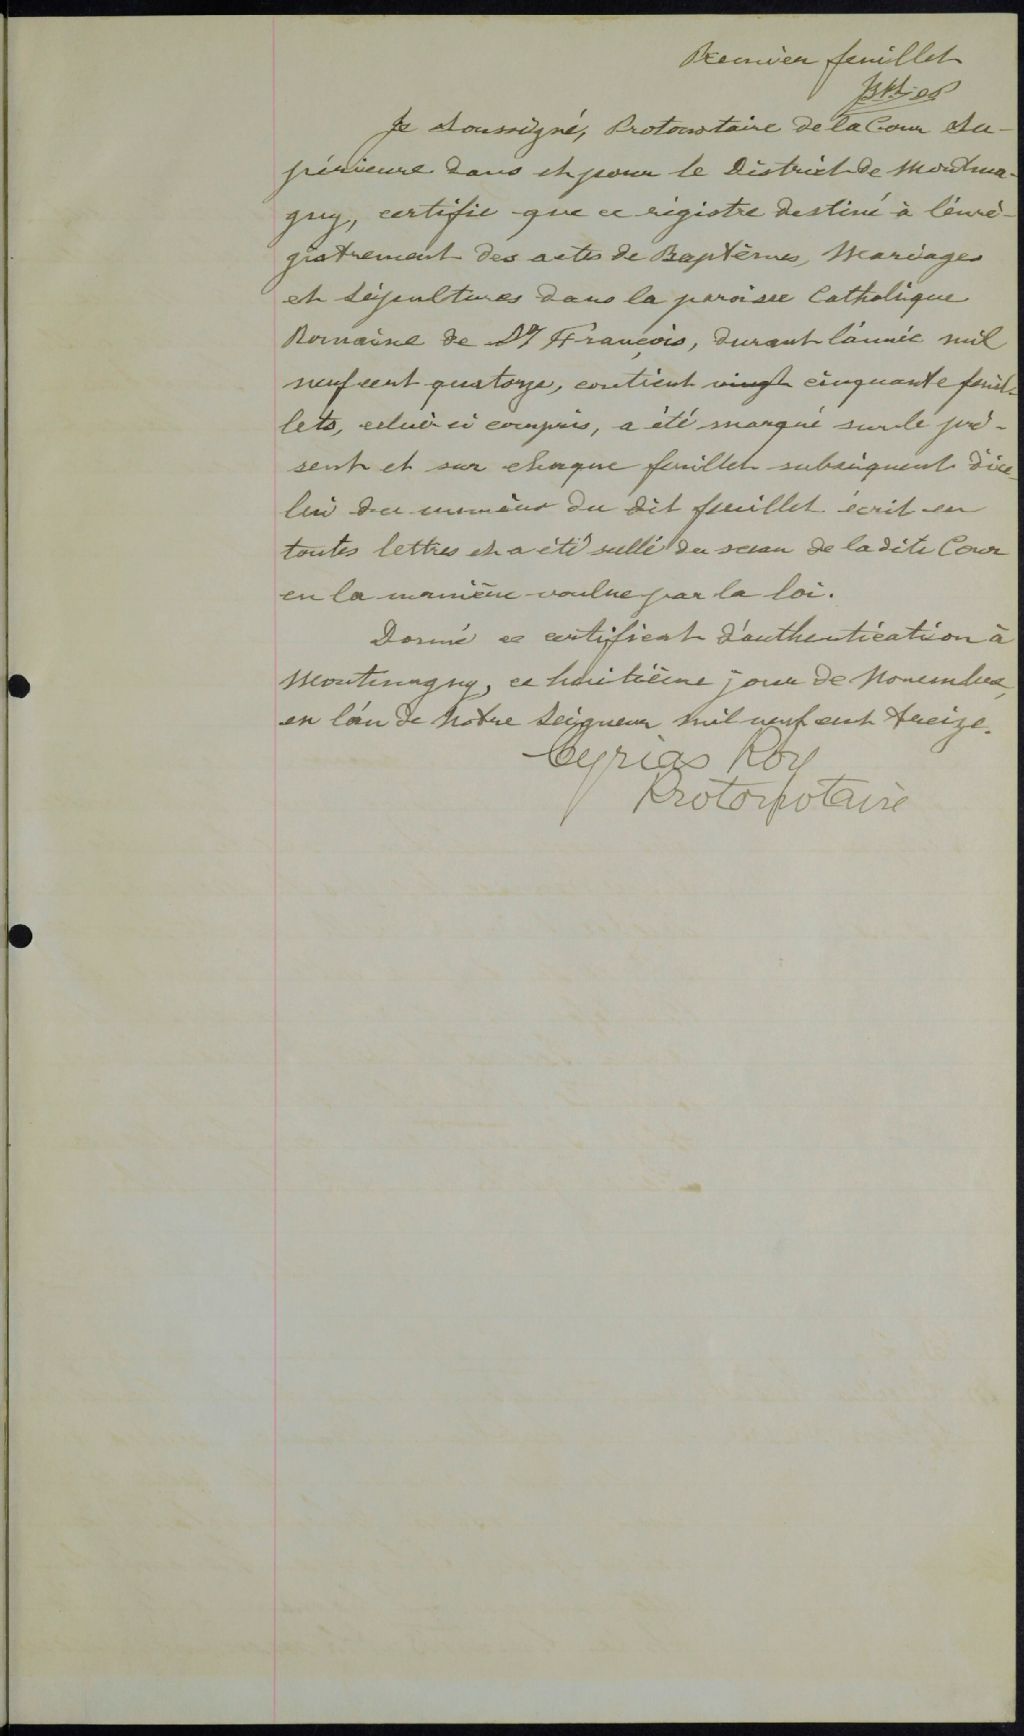 Premier feuillet
Je Soussigné, Protonotaire de la Cour Su-
périeure dans et pour le District de Montma-
gny, certifie que ce régistre destiné à l'enré-
gistrement des actes de Baptêmes, Mariages
et Sépultures dans la paroisse Catholique
Romaine de St François, durant l'année mil
neuf cent quatorze, contient vingt cinquante feuil-
lets, celui ci compris, a été marqué sur le pré-
sent et sur chaque feuillet subséquent d'ice-
lui du numéro du dit feuillet écrit en
toutes lettres et a été scellé du sceau de la dite Cour
en la manière voulue par la loi.
Donné ce certificat d'authentication à
Montmagny, ce huitième jour de Novembre,
en l'an de Notre Seigneur mil neuf cent treize.
Cyrias Roy
Protonotaire